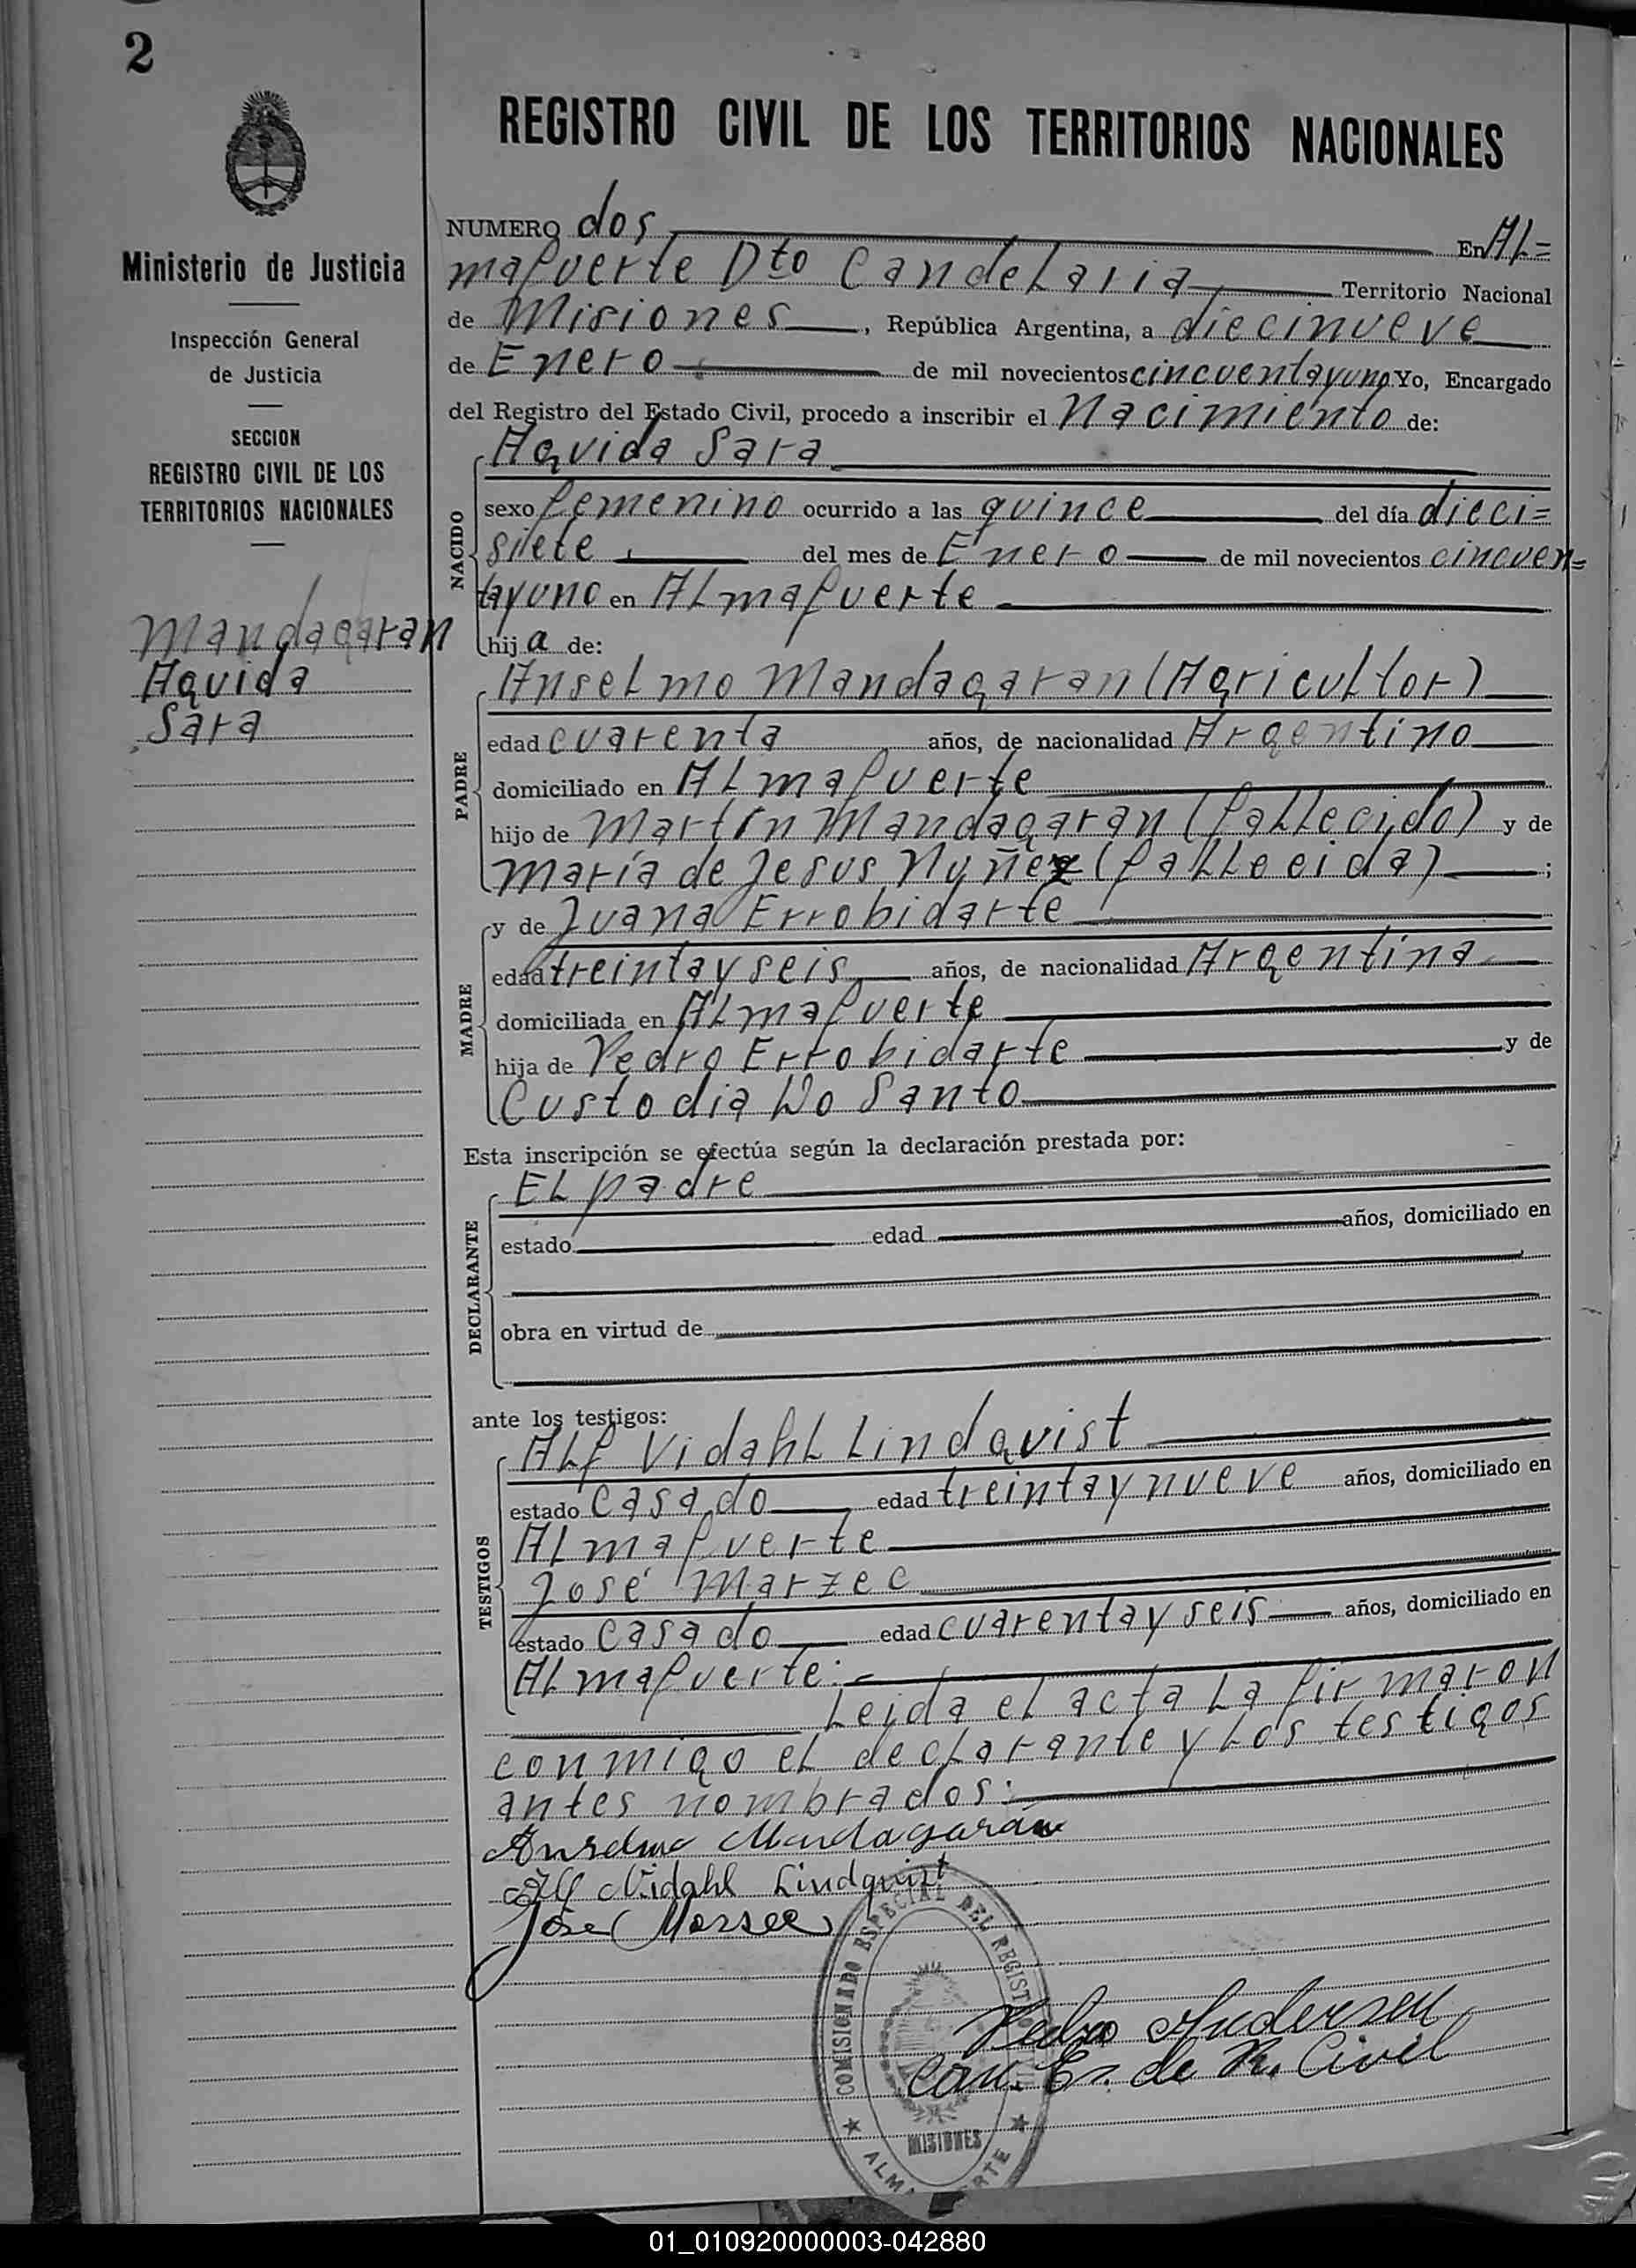 2
REGISTRO CIVIL DE LOS TERRITORIOS NACIONALES
Ministerio de Justicia
Inspección General
de Justicia
SECCION
REGISTRO CIVIL DE LOS
TERRITORIOS NACIONALES
Mandagaran
Aguida
Sara
NUMERO dos En AL=
mafuerte Dto Candelaria Territorio Nacional
de Misiones, República Argentina, a diecinueve
de Enero de mil novecientos cincuentayuno Yo, Encargado
del Registro del Estado Civil, procedo a inscribir el Nacimiento de:
NACIDO
Aguida Sara
sexo femenino ocurrido a las quince del día dieci=
siete del mes de Enero de mil novecientos cincuen=
tayuno en ALmafuerte
hija de:
PADRE
AnseLmo Mandagaran (AgricuLtor)
edad cuarenta años, de nacionalidad Argentino
domiciliado en ALmafuerte
hijo de Martín Mandagaran (faLLecido) y de
María de Jesus Nuñez (faLLecida) ;
MADRE
y de Juana Errobidarte
edad treintayseis años, de nacionalidad Argentina
domiciliada en ALmafuerte
hija de Pedro Errobidarte y de
Custodia Do Santo
Esta inscripción se efectúa según la declaración prestada por:
DECLARANTE
EL padre
estado edad años, domiciliado en
obra en virtud de
ante los testigos:
TESTIGOS
ALf VidahL Lindquist
estado casado edad treintaynueve años, domiciliado en
ALmafuerte
José Marzec
estado casado edad cuarentayseis años, domiciliado en
ALmafuerte:
Leida el acta La firmaron
conmigo eL decLarante y Los testigos
antes nombrados:
Anselmo Mandagarán
Alf Vidahl Lindquist
José
COMISIONADO ESPECIAL DEL REGISTRO
MISIONES
Pedro Andersen
Com. Es. de R. Civil
01_010920000003-042880